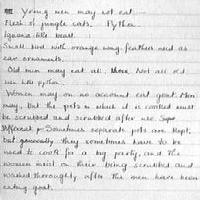 Young men may not eat —
Flesh of jungle cats. Python
Iguana like beast.
Small bird with orange wing feathers used as
ear ornaments.
Old men may eat all. Not all old
men like python
Women may on no account eat goat. Men
may, but the pots in which it is cooked must
be scrubbed and scrubbed after use.
Sometimes separate pots are kept,
but generally they sometimes have to be used
to cook for a big party, and the
women insist on their being scrubbed and
washed thoroughly after the men have been
eating goat.